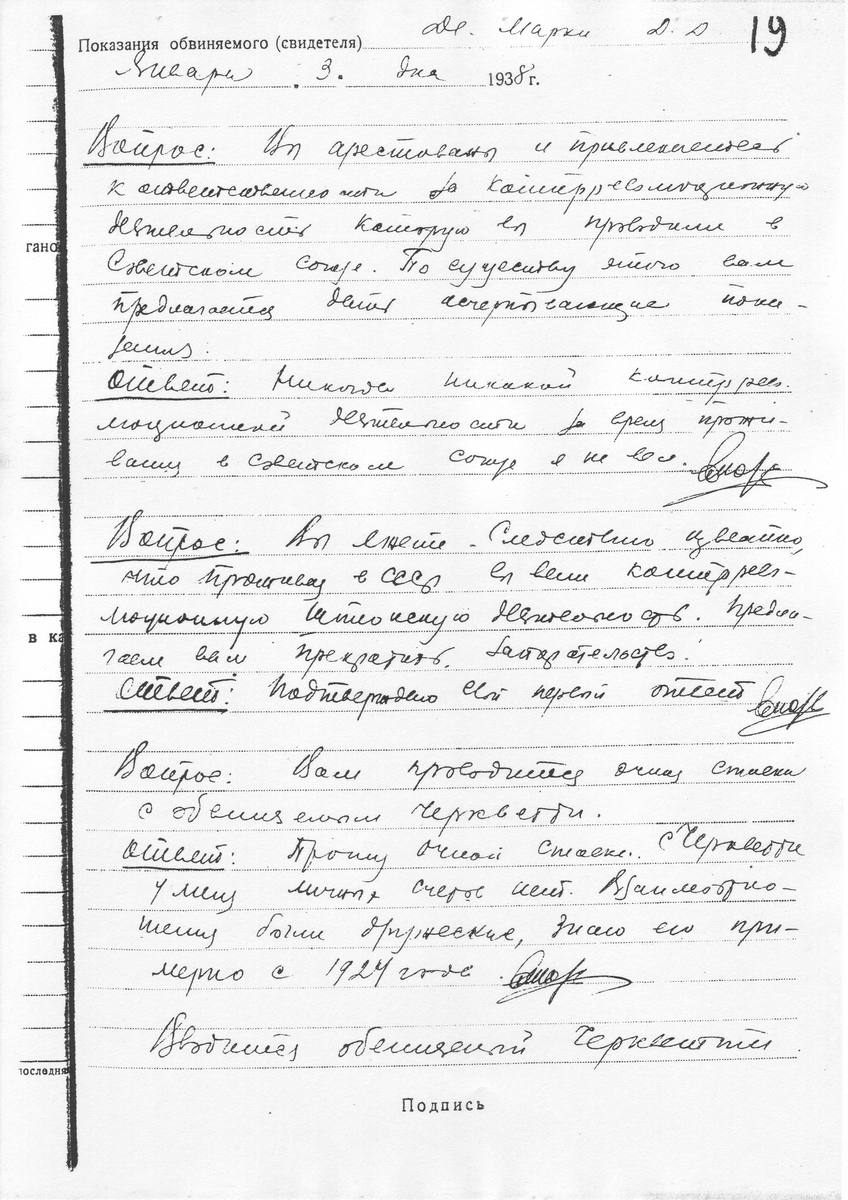 19
Показания обвиняемого (свидетеля) Де Марки Д. Д
Января 3. дня 1938 г.
Вопрос: Вы арестованы и привлекаетесь
к ответственности за контрреволюционную
деятельность которую вы проводили в
гано
Советском союзе. По существу этого вам
предлагается дать исчерпывающие пока-
зания.
Ответ: Никогда никакой контррево-
люционной деятельности за время прожи-
вания в советском союзе я не вел.
Вопрос: Вы лжете. Следствию известно,
что проживая в СССР вы вели контррево-
люционную шпионскую деятельность. Предла-
в ка
гаем вам прекратить запирательство.
Ответ: Подтверждаю свой первый ответ
Вопрос: Вам проводится очная ставка
с обвиняемым Черкветти.
Ответ: Прошу очной ставки. С Черкветти
у меня личных счетов нет. Взаимоотно-
шения были дружеские, знаю его при-
мерно с 1924 года.
Вводится обвиняемый Черкветти
последня
Подпись